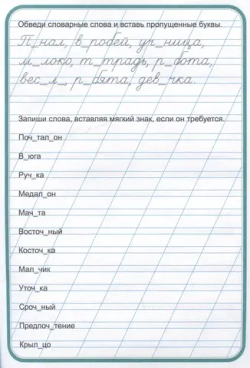 Обведи словарные слова и вставь пропущенные буквы.
П_нал, в_робей, уч_ница,
м_локо, т_традь, р_бота,
вес_л_, р_бята, дев_чка.
Запиши слова, вставляя мягкий знак, если он требуется.
Поч_тал_он
В_юга
Руч_ка
Медал_он
Мач_та
Восточ_ный
Косточ_ка
Мал_чик
Уточ_ка
Сроч_ный
Предпоч_тение
Крыл_цо